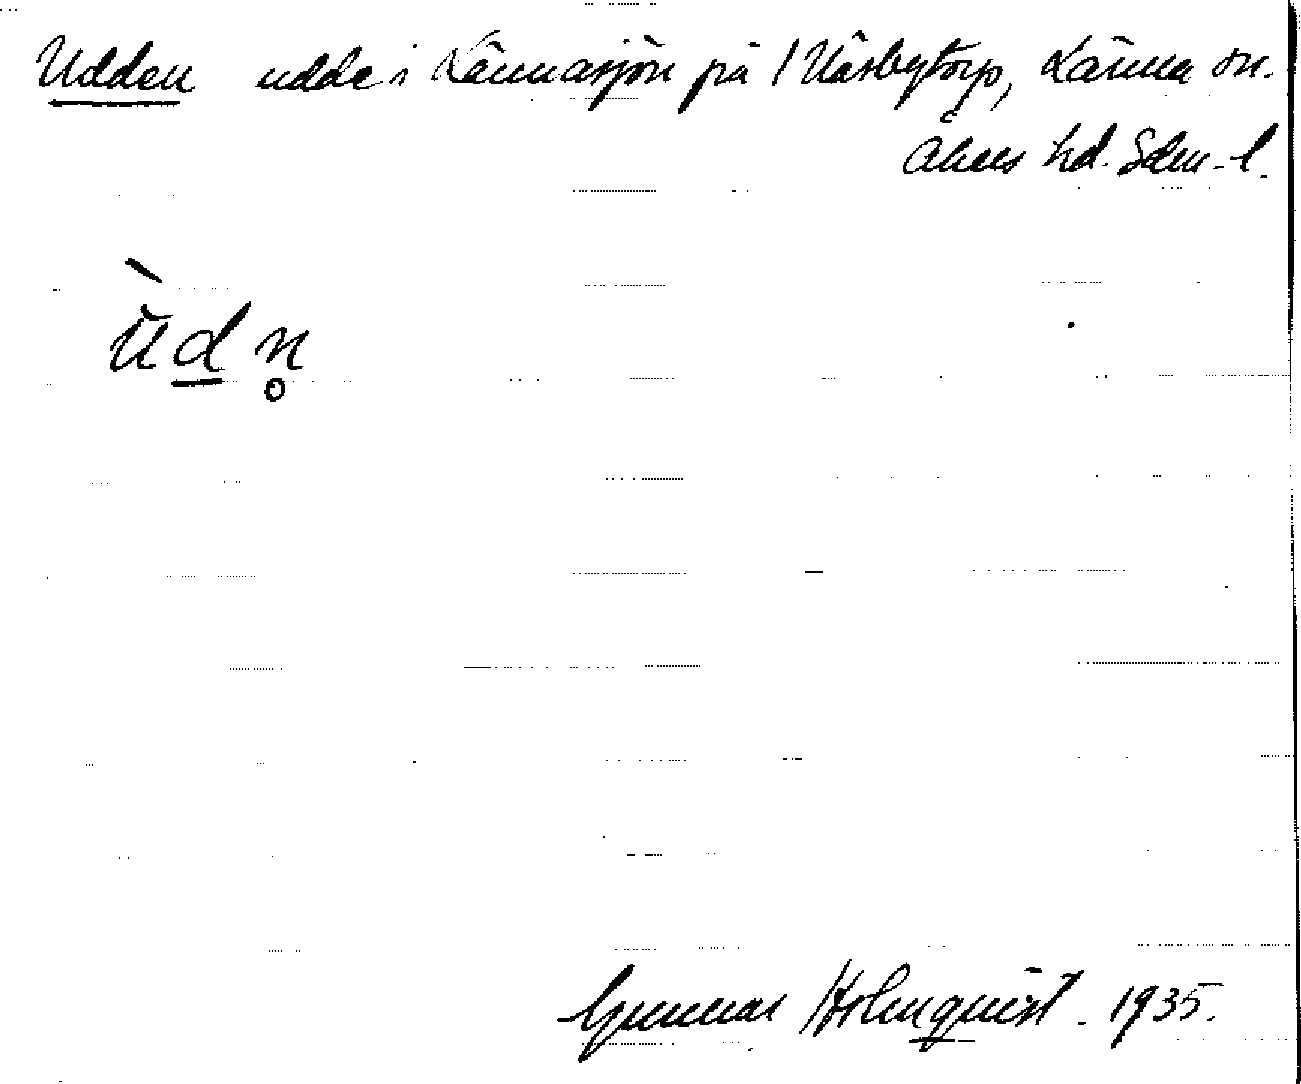 Udden udde i Lännasjön på / Näsbytorp, Länna sn.
Åkers hd. Sdm. l.
ùd̲n̥
Gunnar Holmquist. 1935.